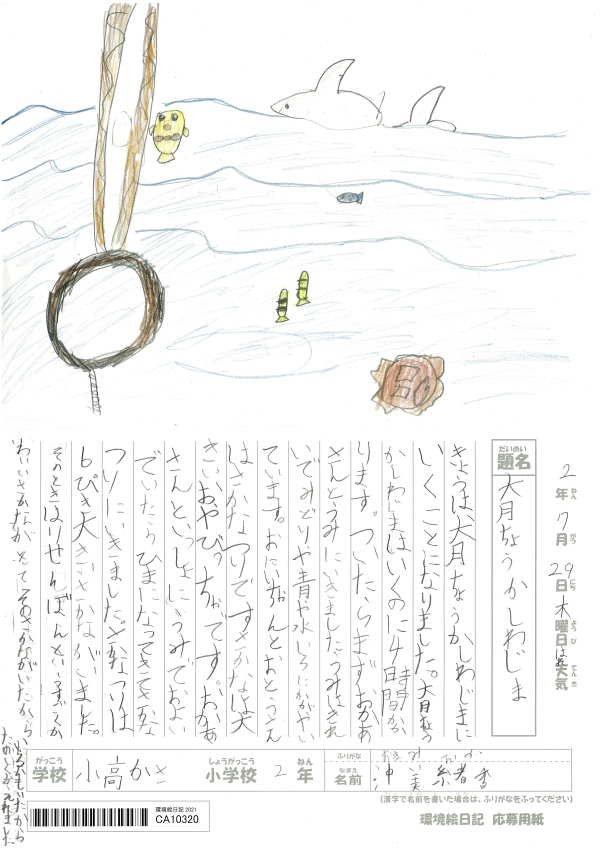 2年7月29日木曜日はれ
ねん がつ にち ようび てんき
天気
だいめい
題名
大月ちょうかしわじま
きょうは大月ちょうかしわじまに
いくことになりました。大月ちょう
かしわじまはいくのに4時間かか
ります。ついたらまずおかあ
さんとうみにいきましたうみはきれ
いでみどりや青や水いろにかがやい
ています。おにいちゃんとおとうさん
はさかなつりですさかなは大
きいおやびっちゃです。おかあ
さんといっしょにうみでおよい
でいたらひまになってきてさかな
つりにいきました。さかなつりは
6ぴき大きいさかながいました。
そのときはりせんぼんという
わいいさかながいて
がっこう
学校
小高
しょうがっこう
小学校
2年
ねん
ふりがな
なまえ
名前
沖
(漢字で名前を書いた場合は、ふりがなをふってください)
環境絵日記 2021
CA10320
環境絵日記 応募用紙